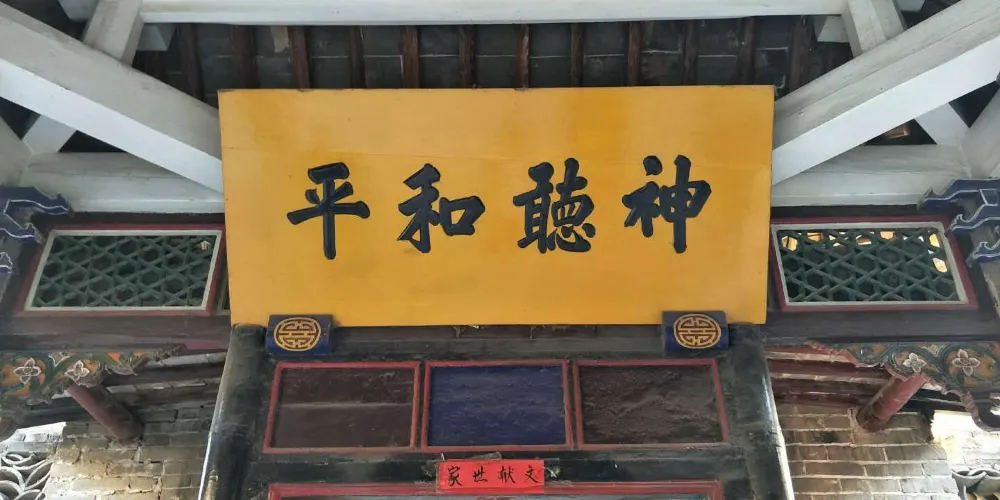 神聽和平
文献世家